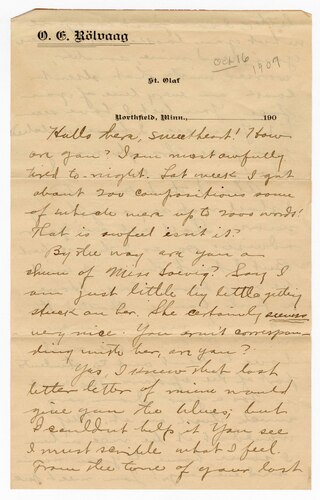 O. E. Rölvaag
Oct 16
1909
St. Olaf
Northfield, Minn., 190
Hallo there, sweetheart! How
are you? I am most awfully
tired to-night. Last week I got
about 200 compositions some
of which were up to 2000 words!
That is awful isn't it?
By the way are you a
chum of Miss Solvig? Say I
am just little by little getting
stuck on her. She certainly seems
very nice. You aren't correspon-
ding with her, are you?
Yes, I knew that last
letter letter of mine would
give you the blues, but
I couldn't help it. You see
I must scribble what I feel.
From the tone of your last